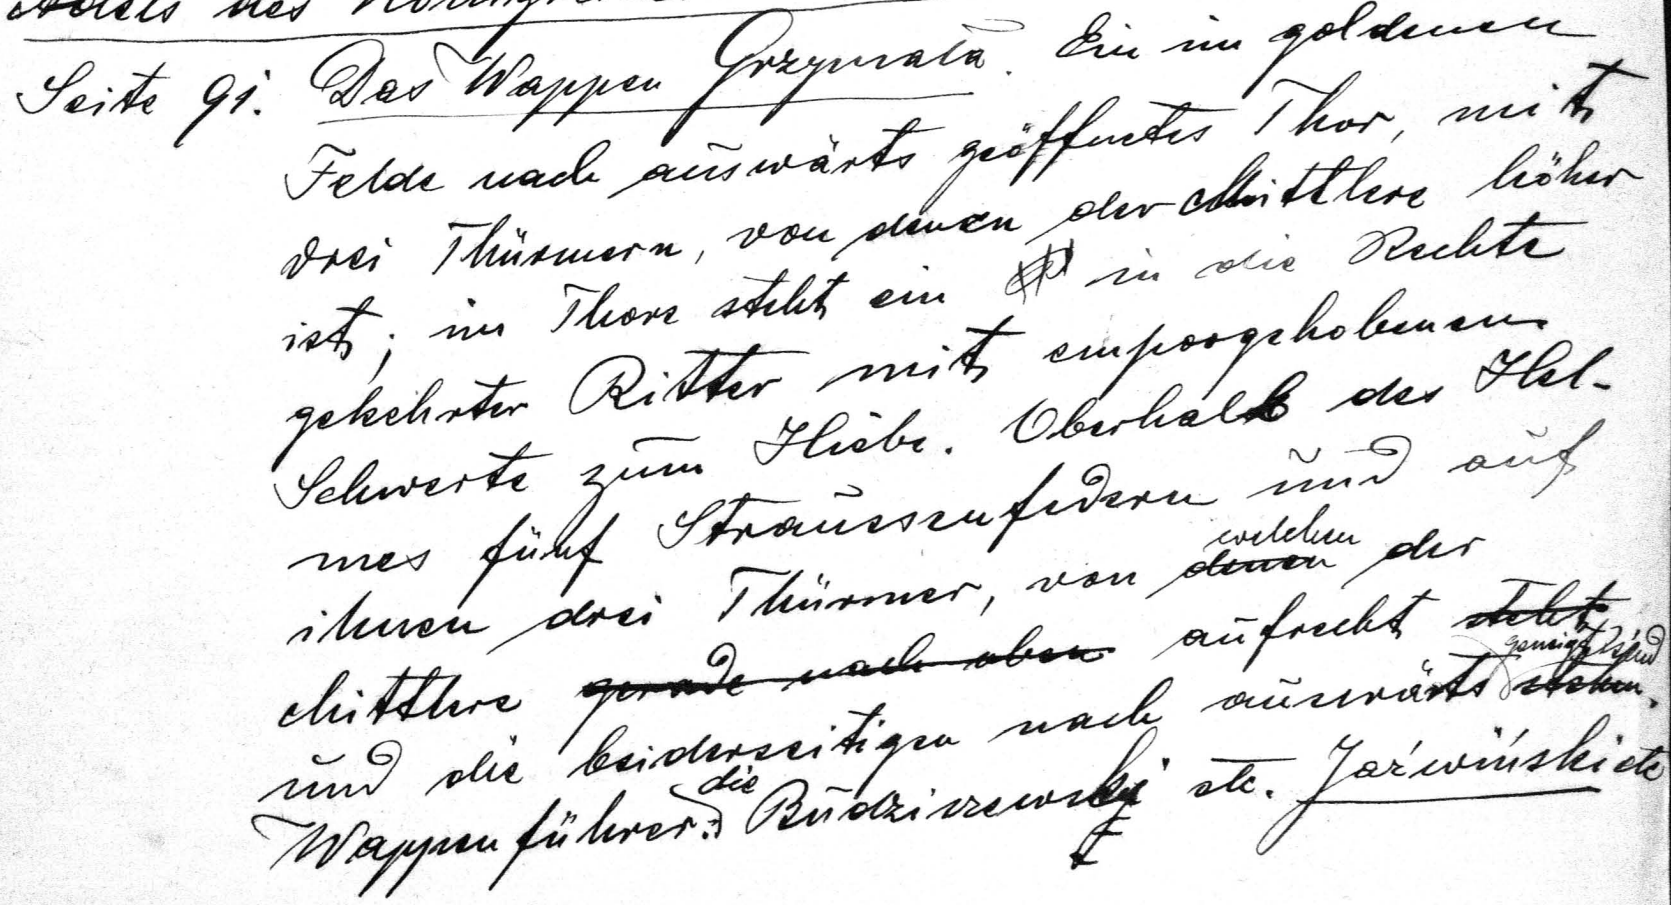 Adels des
Seite 91. Das Wappen Grzymała. Ein im goldenen
Felde nach auswärts geöffnetes Thor, mit
drei Thürmern, von denen der Mittlere höher
ist; im Thore steht ein in die Rechte
gekehrter Ritter mit emporgehobenem
Schwerte zum Hiebe. Oberhalb des Hel-
mes fünf Straussenfedern und auf
ihnen drei Thürmer, von denen welchen der
Mittlere gerade nach oben aufrecht steht
und die beiderseitigen nach auswärts geneigt sind stehen.
Wappenführer: die Budziszewski etc. Jaźwiński etc